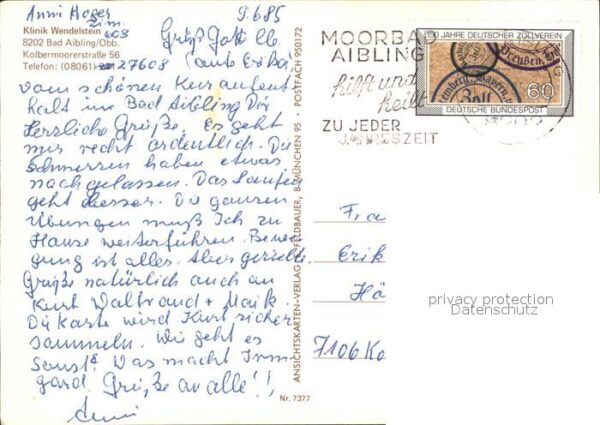 Anni Hager
Zim.
Klinik Wendelstein 603
8202 Bad Aibling/Obb.
Kolbermoorerstraße 56
Telefon: (08061) 27608
9.6.85
Grüß Gott lb.
vom schönen Kuraufent
halt im Bad Aibling Dir
Herzliche Grüße. Es geht
mir recht ordentlich. Die
Schmerzen haben etwas
nachgelassen. Das Laufen
geht besser. Die ganzen
Übungen muß Ich zu
Hause weiterführen. Bewe
gung ist alles. Aber gezielt.
Grüße natürlich auch an
Kurt Waltraud + Maik.
Die Karte wird Kurt sicher
sammeln. Wie geht es
Sonst? Was macht Irm
gard. Grüße an alle!!,
Anni
ANSICHTSKARTEN-VERLAG FELDBAUER, 8 MÜNCHEN 95 · POSTFACH 950172
Nr. 7377
MOORBAD
AIBLING
hilft und
heilt
ZU JEDER
JAHRESZEIT
150 JAHRE DEUTSCHER ZOLLVEREIN
Preußen
Bayern
Zoll
60
DEUTSCHE BUNDESPOST
Frau
Erik
Hä
7106 Ko
privacy protection
Datenschutz